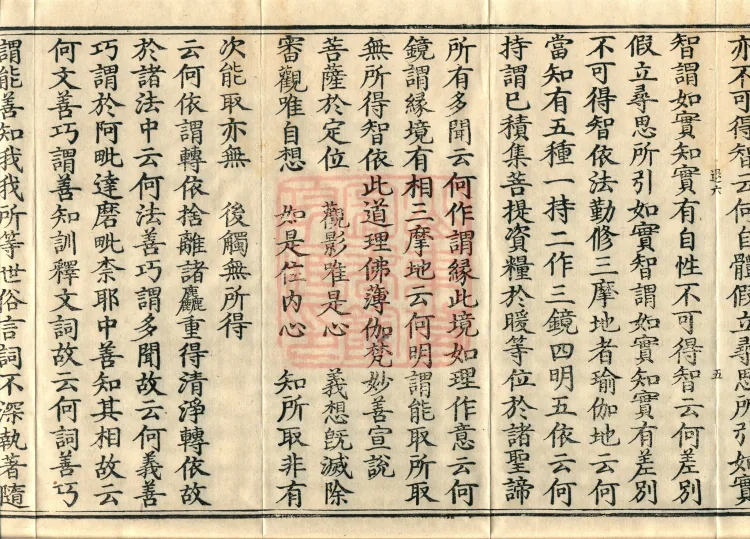 亦不可得智云何自體假立尋思所引如實
智謂如實知實有自性不可得智云何差別
假立尋思所引如實智謂如實知實有差別
不可得智依法勤修三摩地者瑜伽地云何
當知有五種一持二作三鏡四明五依云何
持謂已積集菩提資糧於暖等位於諸聖諦
所有多聞云何作謂緣此境如理作意云何
鏡謂緣境有相三摩地云何明謂能取所取
無所得智依此道理佛薄伽梵妙善宣說
菩薩於定位 觀影唯是心 義想既滅除
審觀唯自想 如是住內心 知所取非有
次能取亦無 後觸無所得
云何依謂轉依捨離諸麤重得清淨轉依故
於諸法中云何法善巧謂多聞故云何義善
巧謂於阿毗達磨毗柰耶中善知其相故云
何文善巧謂善知訓釋文詞故云何詞善巧
謂能善知我我所等世俗言詞不深執著隨
五